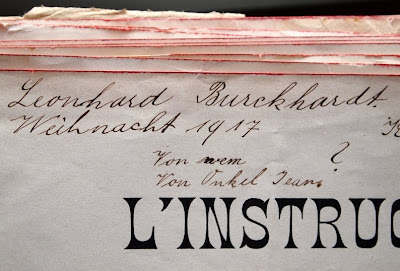 Leonhard Burckhardt.
Weihnacht 1917
Von wem ?
Von Onkel Jean.
L'INSTRUC